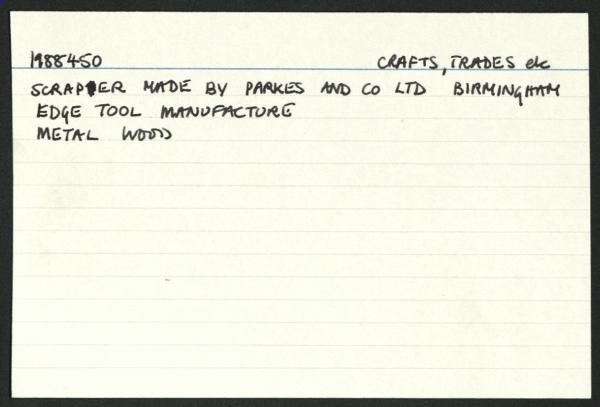 1988450 CRAFTS, TRADES etc
SCRAPER MADE BY PARKES AND CO LTD BIRMINGHAM
EDGE TOOL MANUFACTURE
METAL WOOD